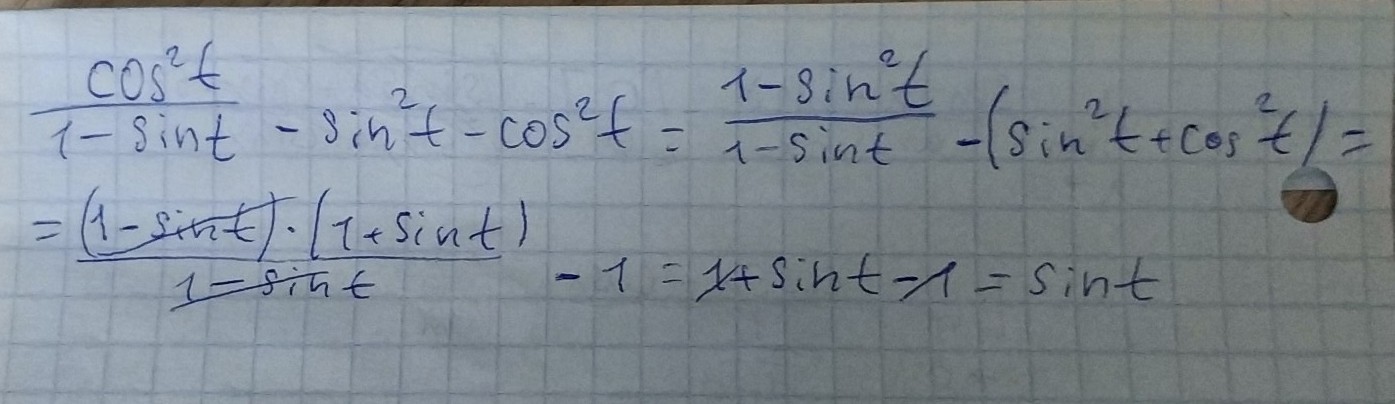 cos²t/(1 - sint) - sin²t - cos²t = (1 - sin²t)/(1 - sint) - (sin²t + cos²t) =
= (1 - sint)·(1 + sint)/(1 - sint) - 1 = 1 + sint - 1 = sint